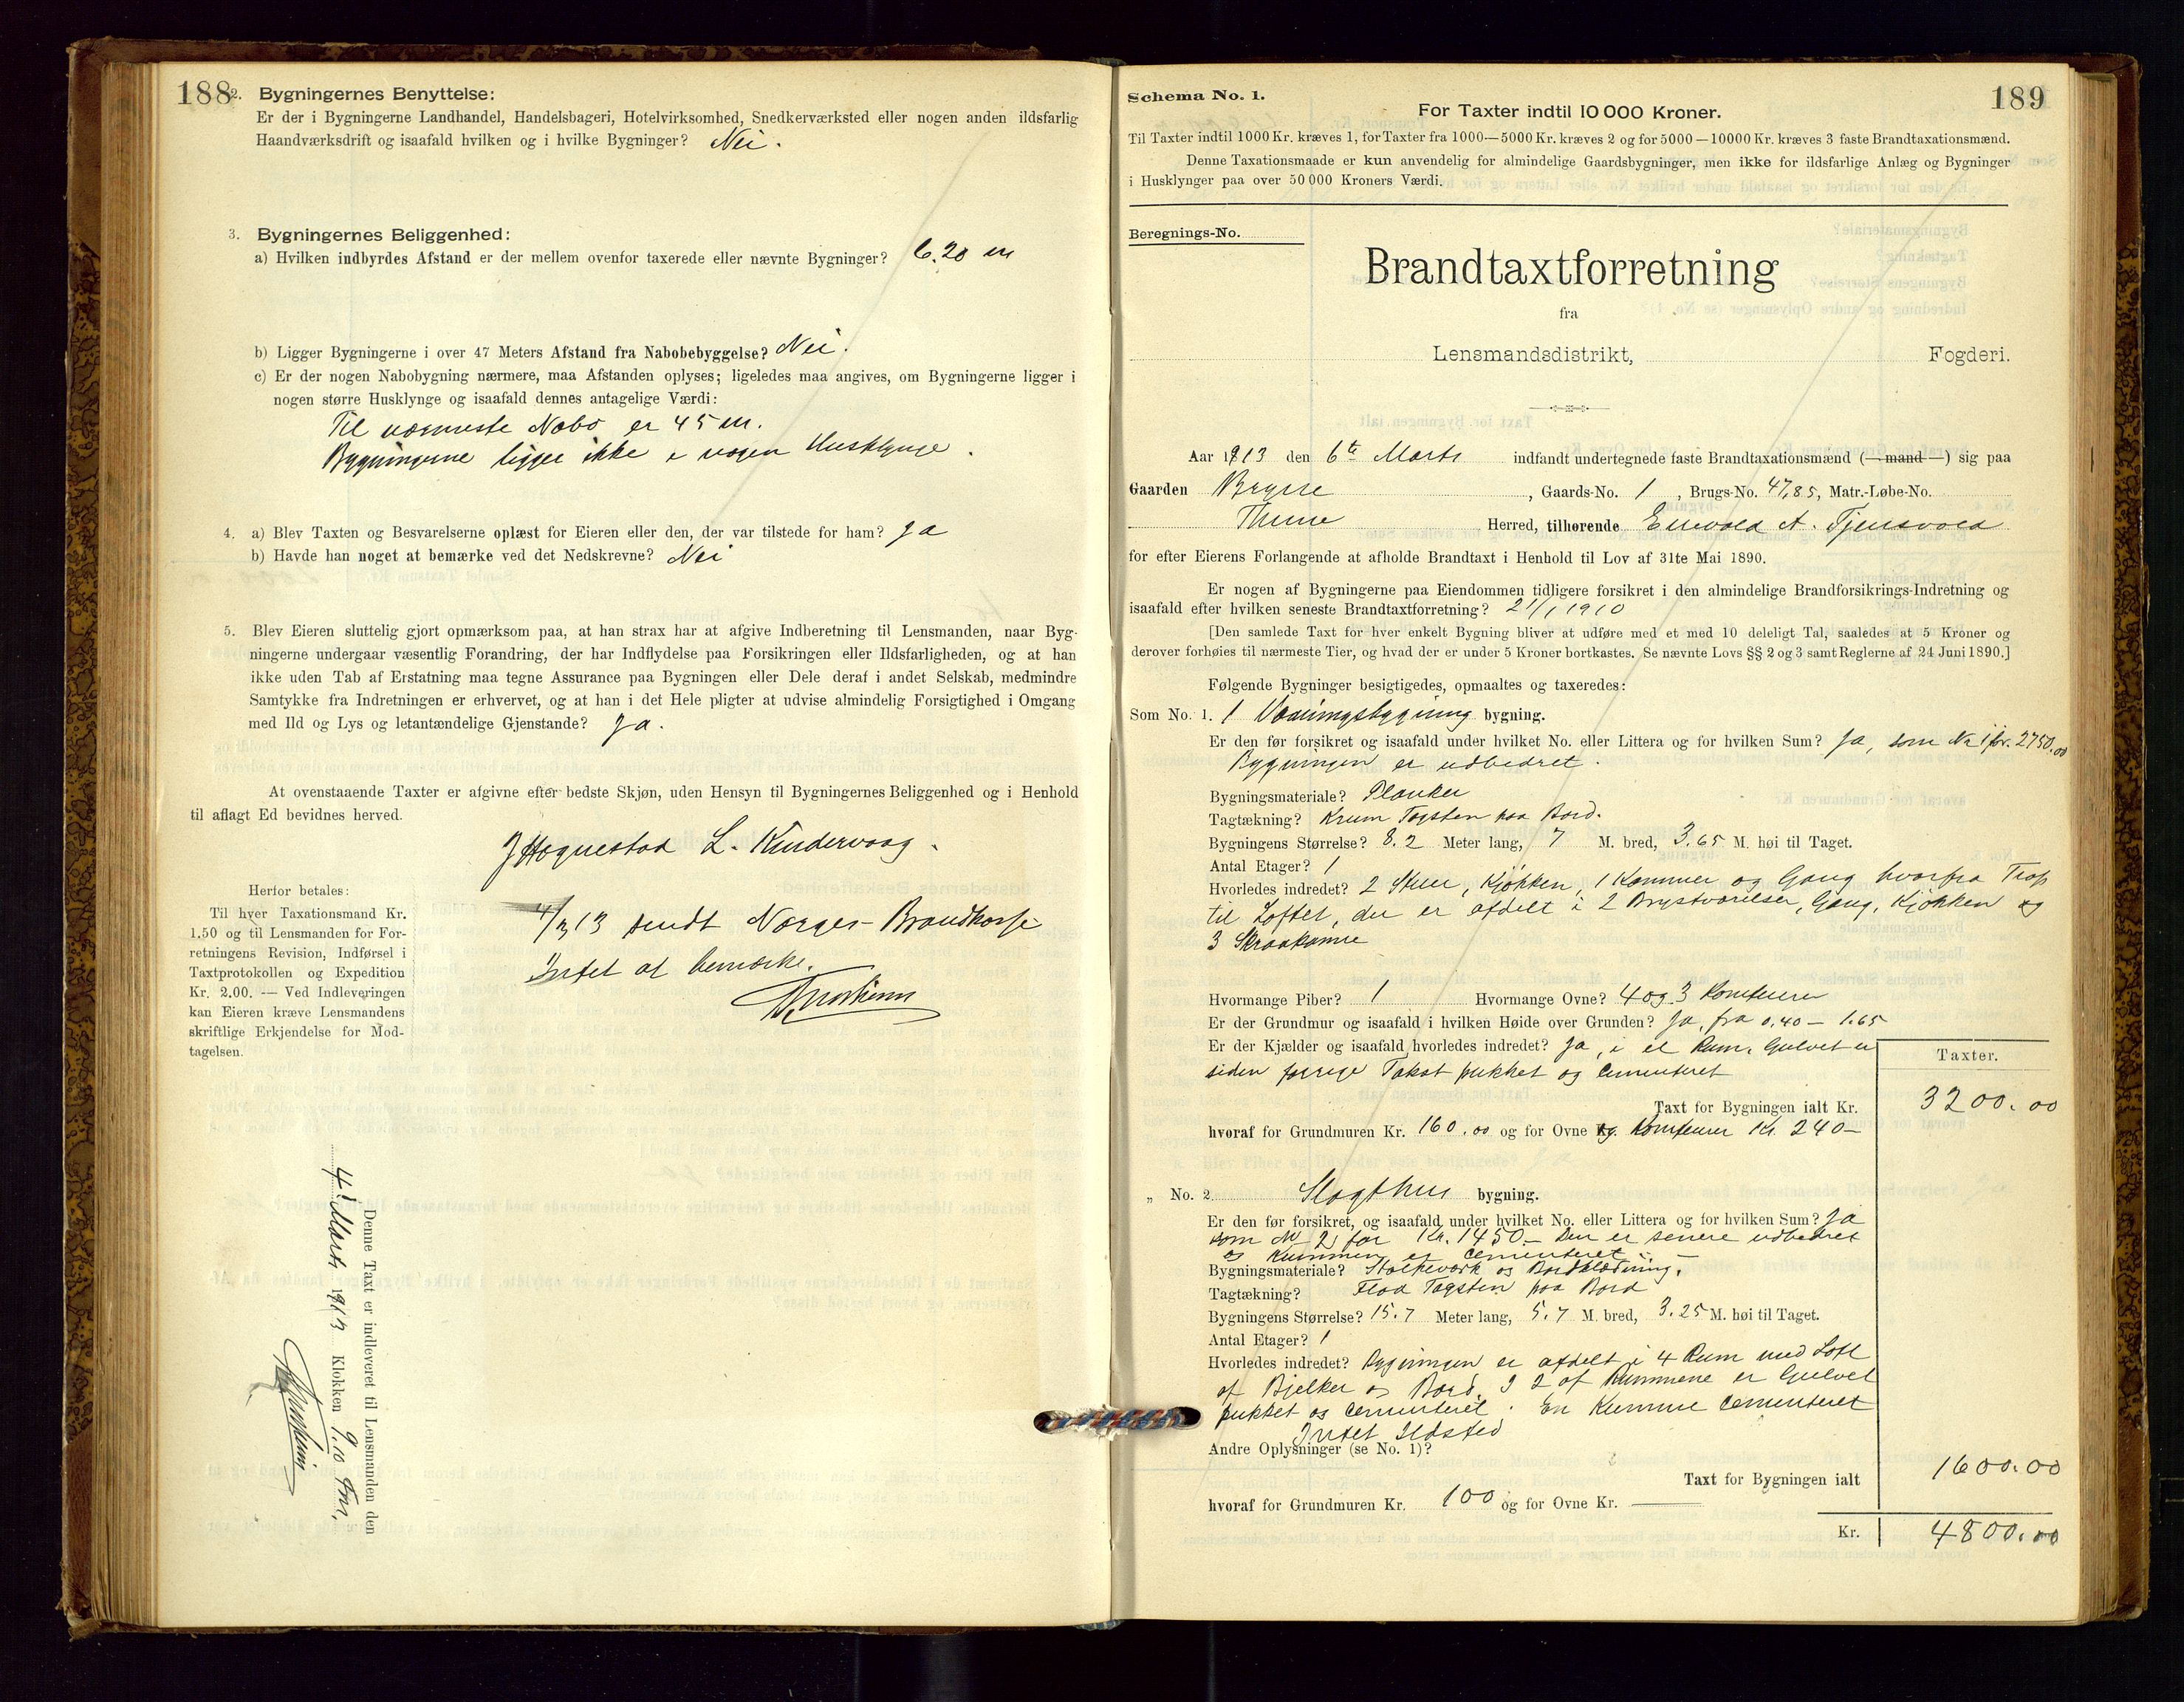 188
2. Bygningernes Benyttelse:
Er der i Bygningerne Landhandel, Handelsbageri, Hotelvirksomhed, Snedkerværksted eller nogen anden ildsfarlig
Haandværksdrift og isaafald hvilken og i hvilke Bygninger? Nei.
3. Bygningernes Beliggenhed:
a) Hvilken indbyrdes Afstand er der mellem ovenfor taxerede eller nævnte Bygninger? 6.20 m
b) Ligger Bygningerne i over 47 Meters Afstand fra Nabobebyggelse? Nei.
c) Er der nogen Nabobygning nærmere, maa Afstanden oplyses; ligeledes maa angives, om Bygningerne ligger i
nogen større Husklynge og isaafald dennes antagelige Værdi:
Til nærmeste Nabo er 45 m.
Bygningerne ligger ikke i nogen Husklynge.
4. a) Blev Taxten og Besvarelserne oplæst for Eieren eller den, der var tilstede for ham? Ja
b) Havde han noget at bemærke ved det Nedskrevne? Nei
5. Blev Eieren sluttelig gjort opmærksom paa, at han strax har at afgive Indberetning til Lensmanden, naar Byg-
ningerne undergaar væsentlig Forandring, der har Indflydelse paa Forsikringen eller Ildsfarligheden, og at han
ikke uden Tab af Erstatning maa tegne Assurance paa Bygningen eller Dele deraf i andet Selskab, medmindre
Samtykke fra Indretningen er erhvervet, og at han i det Hele pligter at udvise almindelig Forsigtighed i Omgang
med Ild og Lys og letantændelige Gjenstande? Ja.
At ovenstaaende Taxter er afgivne efter bedste Skjøn, uden Hensyn til Bygningernes Beliggenhed og i Henhold
til aflagt Ed bevidnes herved.
J Høgnestad L. Kindervaag.
4/3 13 sendt Norges-Brandkasse
Intet at bemærke.
Herfor betales:
Til hver Taxationsmand Kr.
1.50 og til Lensmanden for For-
retningens Revision, Indførsel i
Taxtprotokollen og Expedition
Kr. 2.00. — Ved Indleveringen
kan Eieren kræve Lensmandens
skriftlige Erkjendelse for Mod-
tagelsen.
Denne Taxt er indleveret til Lensmanden den
4' Marts 1913 Klokken 9.10 Fm.
189
Schema No. 1.
For Taxter indtil 10 000 Kroner.
Til Taxter indtil 1000 Kr. kræves 1, for Taxter fra 1000—5000 Kr. kræves 2 og for 5000—10000 Kr. kræves 3 faste Brandtaxationsmænd.
Denne Taxationsmaade er kun anvendelig for almindelige Gaardsbygninger, men ikke for ildsfarlige Anlæg og Bygninger
i Husklynger paa over 50 000 Kroners Værdi.
Beregnings-No.
Brandtaxtforretning
fra
Lensmandsdistrikt, Fogderi.
Aar 1913 den 6te Marts indfandt undertegnede faste Brandtaxationsmænd (—mand—) sig paa
Gaarden Bryne, Gaards-No. 1, Brugs-No. 47,85, Matr.-Løbe-No.
Thime Herred, tilhørende Enevold A. Tjensvold
for efter Eierens Forlangende at afholde Brandtaxt i Henhold til Lov af 31te Mai 1890.
Er nogen af Bygningerne paa Eiendommen tidligere forsikret i den almindelige Brandforsikrings-Indretning og
isaafald efter hvilken seneste Brandtaxtforretning? 21/1 1910
[Den samlede Taxt for hver enkelt Bygning bliver at udføre med et med 10 deleligt Tal, saaledes at 5 Kroner og
derover forhøies til nærmeste Tier, og hvad der er under 5 Kroner bortkastes. Se nævnte Lovs §§ 2 og 3 samt Reglerne af 24 Juni 1890.]
Følgende Bygninger besigtigedes, opmaaltes og taxeredes:
Som No. 1. 1 Vaaningsbygning bygning.
Er den før forsikret og isaafald under hvilket No. eller Littera og for hvilken Sum? Ja, som No 1 for. 2750.00
Bygningen er udbedret.
Bygningsmateriale? Planker
Tagtækning? Krum Tagsten paa Bord.
Bygningens Størrelse? 8.2 Meter lang, 7 M. bred, 3.65 M. høi til Taget.
Antal Etager? 1
Hvorledes indredet? 2 Stuer, Kjøkken, 1 Kammer og Gang hvorfra Trap
til Loftet, der er afdelt i 2 Brystværelser, Gang, Kjøkken og
3 Skraakamre
Hvormange Piber? 1 Hvormange Ovne? 4 og 3 Komfurer
Er der Grundmur og isaafald i hvilken Høide over Grunden? Ja, fra 0,40 — 1.65
Er der Kjælder og isaafald hvorledes indredet? Ja, i et Rum. Gulvet er
siden forrige Takst pukket og cementeret
Taxter.
Taxt for Bygningen ialt Kr. 3200.00
hvoraf for Grundmuren Kr. 160.00 og for Ovne og Komfurer Kr. 240—
„ No. 2 Slagthus bygning.
Er den før forsikret, og isaafald under hvilket No. eller Littera og for hvilken Sum? Ja
som No 2 for Kr. 1450.— Den er senere udbedret
og Kummen er cementeret. —
Bygningsmateriale? Stolkeværk og Bordklædning.
Tagtækning? Flad Tagsten paa Bord
Bygningens Størrelse? 15.7 Meter lang, 5.7 M. bred, 3.25 M. høi til Taget.
Antal Etager? 1
Hvorledes indredet? Bygningen er afdelt i 4 Rum med Loft
af Bjelker og Bord. I 2 af Rummene er Gulvet
pukket og cementeret. En Kumme cementeret
Intet Ildsted
Andre Oplysninger (se No. 1)?
Taxt for Bygningen ialt 1600.00
hvoraf for Grundmuren Kr. 100 og for Ovne Kr. ——
Kr. 4800.00